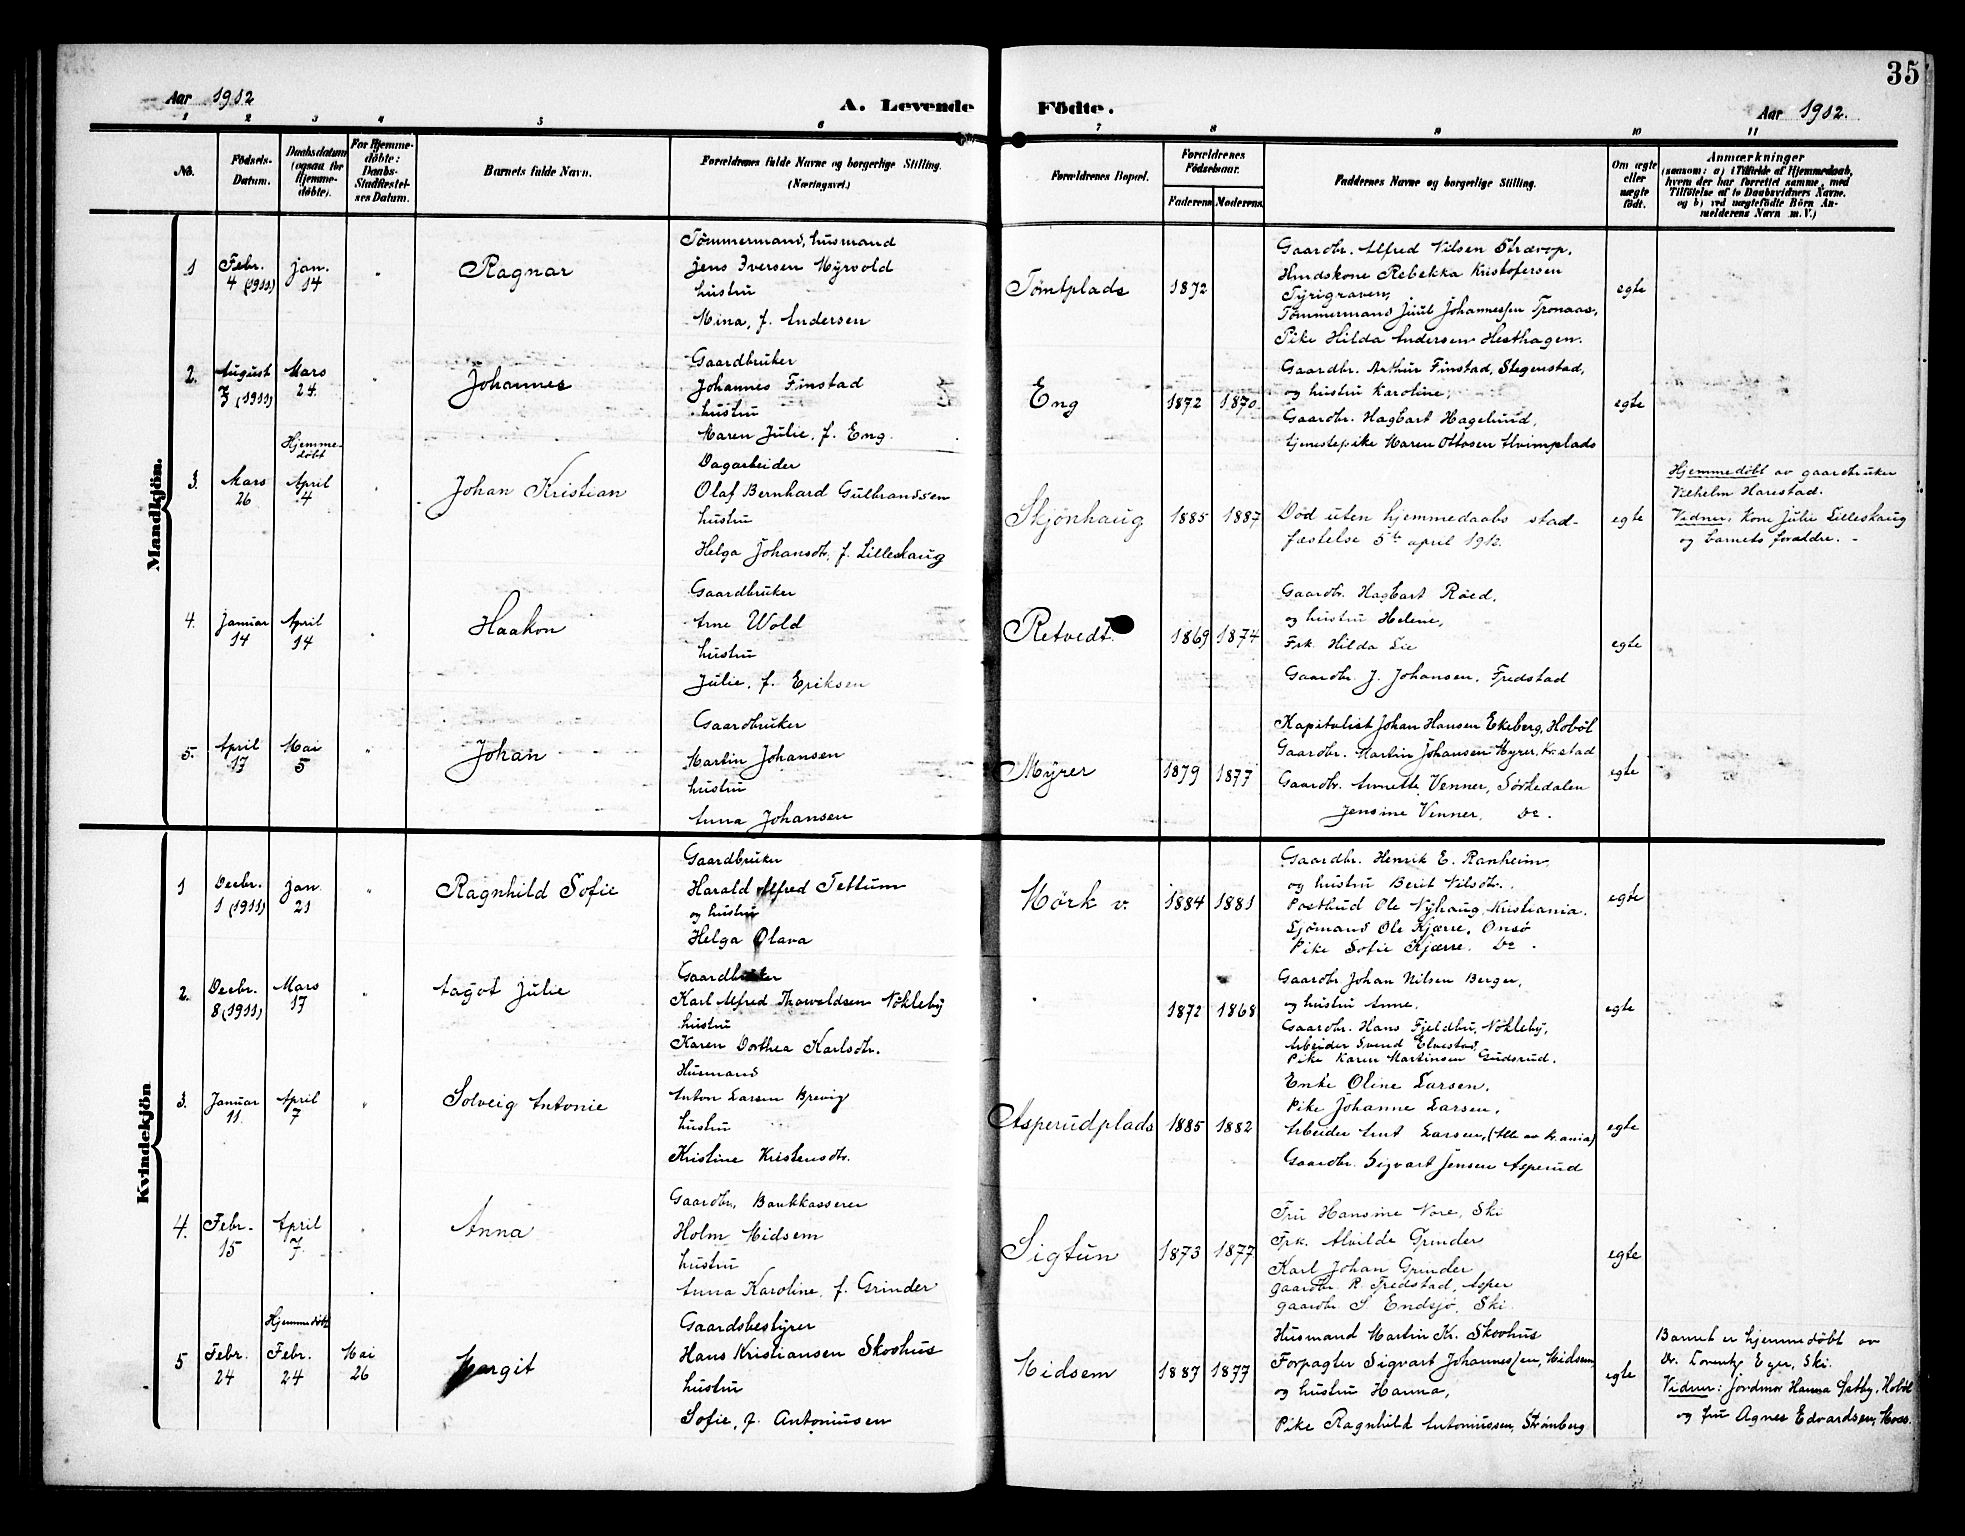 35
Aar 1912
A. Levende Födte.
Aar 1912.
1 2 3 4 5 6 7 8 9 10 11
No.
Födsels-Datum.
Daabsdatum (ogsaa for Hjemmedöbte).
For Hjemmedöbte: Daabs-Stadfæstelses Datum.
Barnets fulde Navn.
Forældrenes fulde Navne og borgerlige Stilling.
(Næringsvei.)
Forældrenes Bopæl.
Forældrenes Födselsaar.
Faderens Moderens
Faddernes Navne og borgerlige Stilling.
Om ægte eller uægte födt.
Anmærkninger
(saasom: a) i Tilfælde af Hjemmedaab,
hvem der har forrettet samme, med
Tilföielse af to Daabsvidners Navne,
og b) ved uægtefödte Börn An-
melderens Navn m. V.)
Mandkjön.
1
Febr. 4 (1911)
Jan. 14
"
Ragnar
Tömmermand, husmand
Jens Iversen Myrvold
hustru
Mina, f. Andersen
Tomtplads
1872
Gaardbr. Alfred Nilsen
Hindskone Rebekka Kristofersen
Tyrigraven,
Tömmermand Juul Johannessen Tronaas,
Pike Hilda Andersen Hesthagen.
egte
2.
August 7 (1911)
Mars 24.
"
Johannes
Gaardbruker
Johannes Finstad
hustru
Maren Julie, f. Eng.
Eng
1872 1870
Gaardbr. Arthur Finstad, Stegenstad,
og hustru Karoline,
Gaardbr. Hagbart Hagelund,
tjenestepike Maren Ottosen
egte
3.
Mars 26
Hjemme-
döbt
April 4
"
Johan Kristian
Dagarbeider
Olaf Bernhard Gulbrandsen
hustru
Helga Johansdtr, f. Lilleskaug
Skjönhaug
1885 1887
Död uten hjemmedaabs stad-
fæstelse 5te april 1912.
egte
Hjemmedöbt av gaardbruker
Vilhelm Harestad.
Vidner: Kone Julie Lilleskaug
og barnets forældre. -
4.
Januar 14
April 14
"
Haakon
Gaardbruker
Arne Wold
hustru
Julie, f. Eriksen
Retvedt
1869 1874
Gaardbr. Hagbart Röed,
og hustru Helene,
Frk. Hilda Lie
Gaardbr. J. Johansen, Fredstad
egte
5.
April 17
Mai 5
"
Johan
Gaardbruker
Martin Johansen
hustru
Anna Johansen
Myrer
1879 1877
Kapitalist Johan Hansen Ekeberg, Hoböl
Gaardbr. Martin Johansen Myrer,
Gaardbr. Annette Venner, Sörkedalen
Jensine Venner, Do.
egte
Kvindekjön
1
Decbr. 1 (1911)
Jan. 21
"
Ragnhild Sofie
Gaardbruker
Harald Alfred Tettum
og hustru
Helga Olava
Mörk v.
1884 1881
Gaardbr. Henrik E. Ranheim,
og hustru Berit Nilsdtr.
Postbud Ole Nyhaug, Kristiania.
Sjömand Ole Kjærre, Onsö
Pike Sofie Kjærre. Do.
egte
2.
Decbr. 8 (1911)
Mars 17
"
Aagot Julie
Gaardbruker
Karl Alfred Thorvaldsen Nökleby
hustru
Karen Dorthea Karlsdtr.
1872 1868
Gaardbr Johan Nilsen Berger,
og hustru Anne.
Gaardbr. Hans Fjeldbu, Nökleby,
Arbeider Svend Elvestad
Pike Karen Martinsen Gudsrud.
egte
3.
Januar 11.
April 7
"
Solveig Antonie
Husmand
Anton Larsen Brevig
hustru
Kristine Kristensdtr.
Asperudplads
1885 1882
Enke Oline Larsen,
Pike Johanne Larsen,
Arbeider Arnt Larsen, (Alle av Kr.ania)
Gaardbr. Sigvart Jensen Asperud
egte
4.
Febr. 15
April 7
"
Anna
Gaardbr., Bankkasserer
Holm Midsem
hustru
Anna Karoline, f. Grinder
Sigtun
1873 1877
Fru Hansine Nore, Ski
Frk. Alvilde Grinder
Karl Johan Grinder
gaardbr. R. Fredstad, Asper
gaardbr. S. Endsjö, Ski.
egte
5
Febr. 24
Hjemmedöbt
Febr. 24
Mai 26
Margit
Gaardsbestyrer
Hans Kristiansen Skovhus
hustru
Sofie, f. Antoniusen
Midsem
1887 1877
Husmand Martin Kr. Skovhus
Forpagter Sigvart Johannessen, Midsem
og hustru Hanna,
Pike Ragnhild Antoniussen, Strömberg
egte
Barnet er hjemmedöbt av
Dr. Lorentz Eger, Ski.
Vidner: Jordmor Hanna Østby, Hoböl
og fru Agnes Edvardsen, Moss.